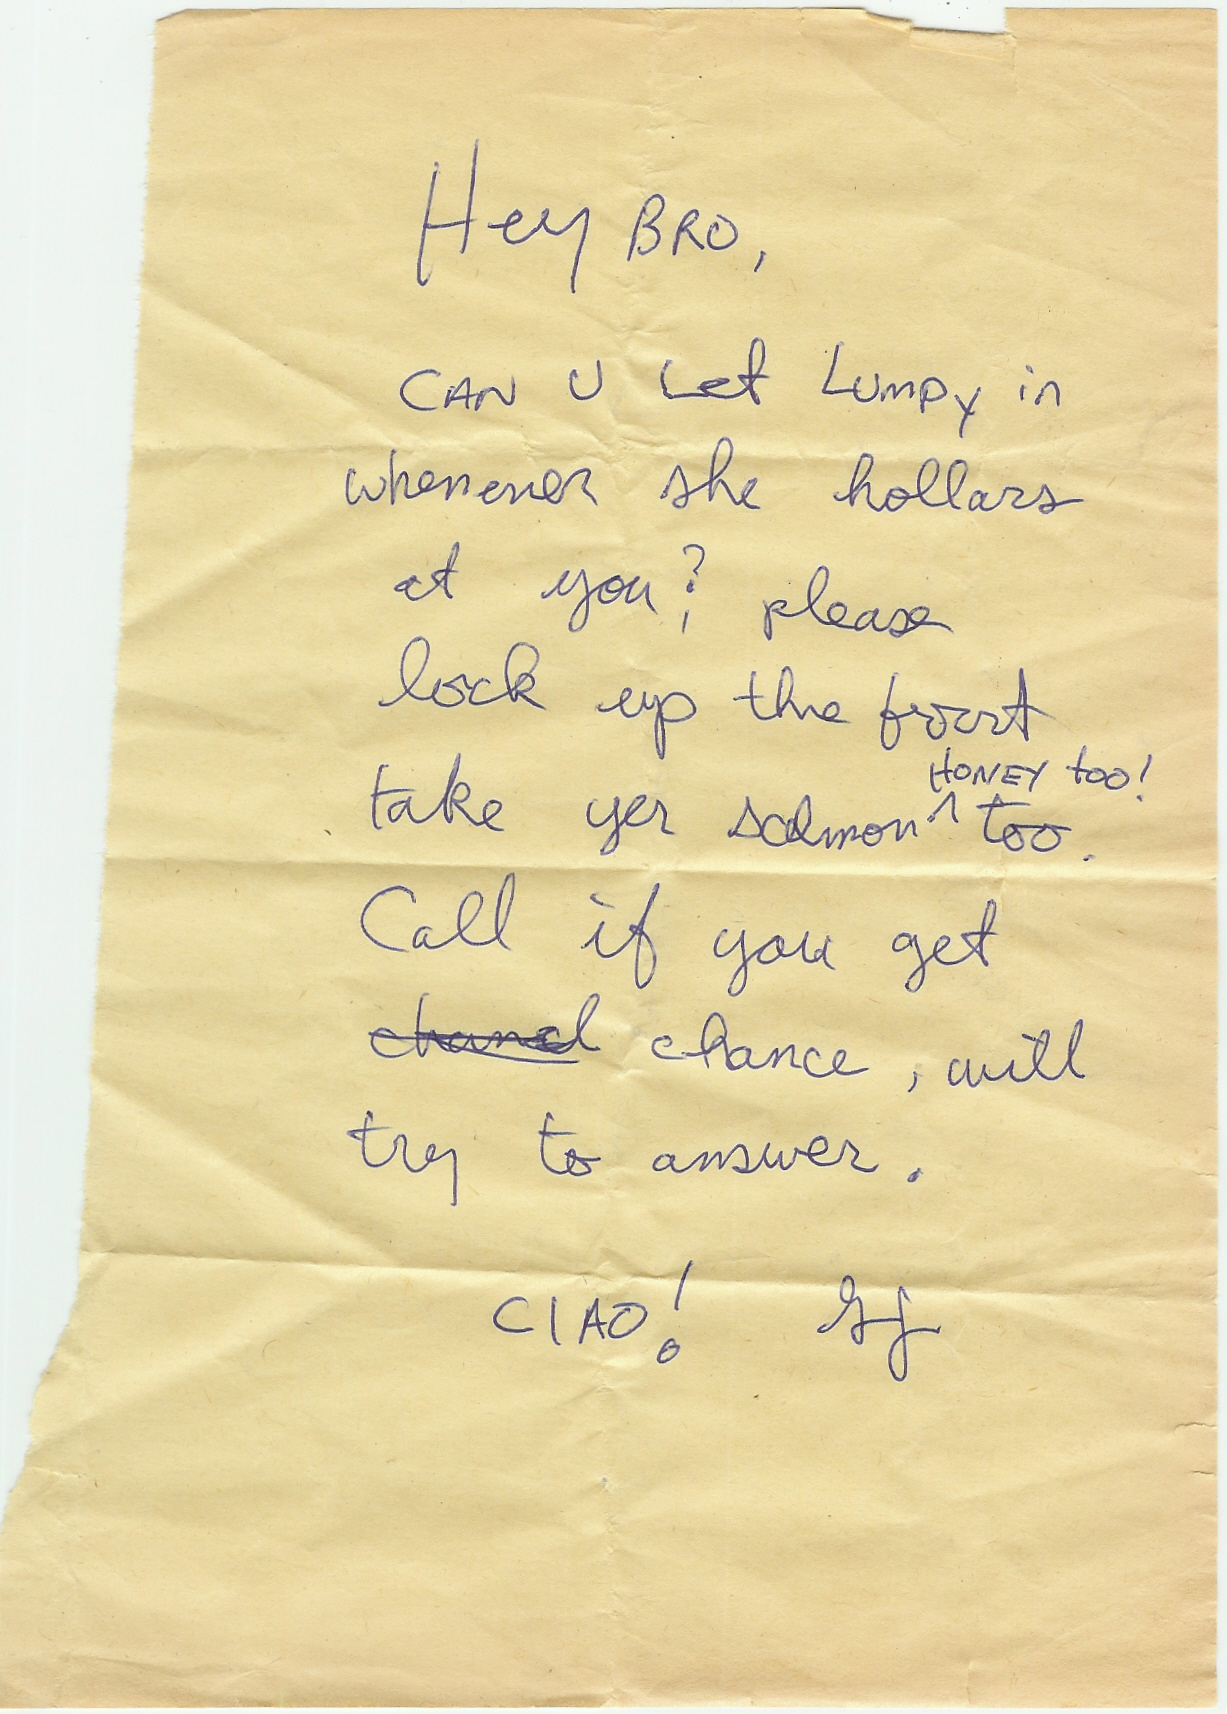 Hey BRO,
CAN U Let Lumpy in
whenever she hollars
at you? please
lock up the front
take yer salmon ^ too.
HONEY too!
Call if you get
chance, will
try to answer.
CIAO!